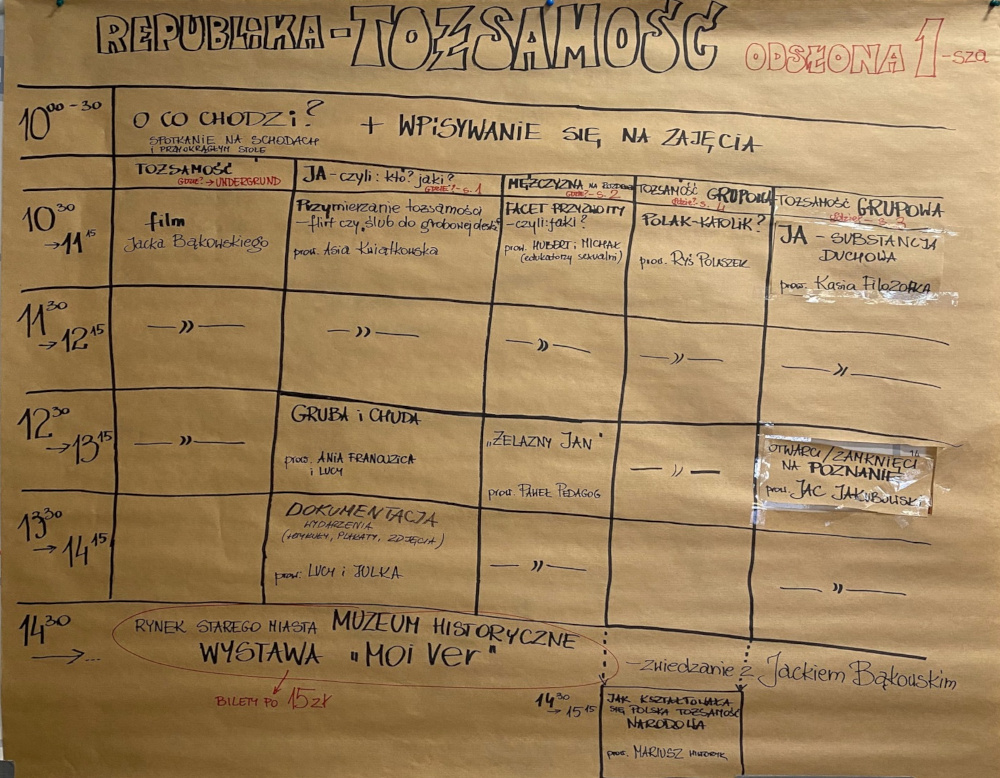 REPUBLIKA-TOŻSAMOŚĆ ODSŁONA 1-sza
10⁰⁰-³⁰
O CO CHODZI?
SPOTKANIE NA SCHODACH
i PRZY OKRĄGŁYM STOLE
+ WPISYWANIE SIĘ NA ZAJĘCIA
TOZSAMOŚĆ
GDZIE? → UNDERGROUND
JA - czyli: kto? jaki?
GDZIE? - s. 1
MĘŻCZYZNA NA
GDZIE? - s. 2
TOZSAMOŚĆ GRUPOWA
gdzie? - s. 4
TOZSAMOŚĆ GRUPOWA
gdzie? - s. 3
10³⁰
→ 11¹⁵
film
Jacka Bąkowskiego
Przymierzanie tozsamości
- flirt czy „ślub do grobowej deski"
prow. Asia Kwiatkowska
FACET PRZYZWOITY
- czyli: jaki?
prow. HUBERT i MICHAŁ
(edukatorzy seksualni)
POLAK-KATOLIK?
prow. RYŚ POLASZEK
JA - SUBSTANCJA
DUCHOWA
prow. Kasia FILOZOFKA
11³⁰
→ 12¹⁵
— » —
— » —
— » —
— » —
— » —
12³⁰
→ 13¹⁵
— » —
GRUBA i CHUDA
prow. ANIA FRANCUZICA
i LUCY
„ŻELAZNY JAN"
prow. PAWEŁ PEDAGOG
— » —
OTWARCI/ZAMKNIĘCI
NA POZNANIE
prow. JAC JAKUBOWSKI
13³⁰
→ 14¹⁵
DOKUMENTACJA
WYDARZENIA
(ARTYKUŁY, PLAKATY, ZDJĘCIA)
prow. LUCY i JULKA
— » —
— » —
14³⁰
→...
RYNEK STAREGO MIASTA MUZEUM HISTORYCZNE
WYSTAWA „Moi Ver"
- zwiedzanie z Jackiem Bąkowskim
BILETY PO 15 zł
14³⁰
→ 15¹⁵
JAK KSZTAŁTOWAŁA
SIĘ POLSKA TOZSAMOŚĆ
NARODOWA
prow. MARIUSZ HISTORYK